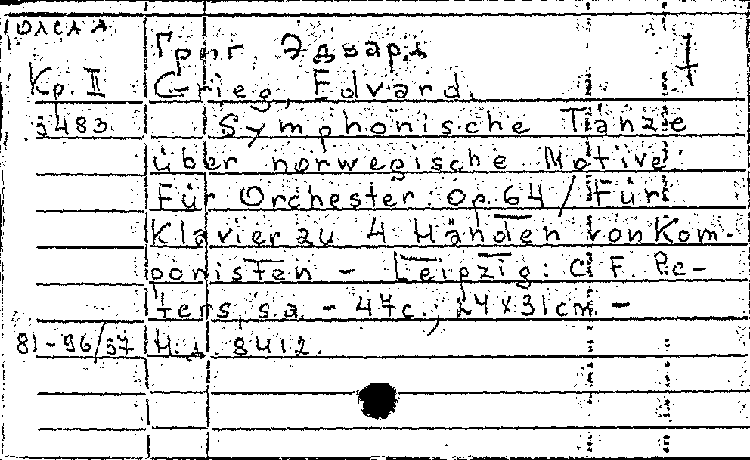 Григ, Эдвард
Кр. II Grieg, Edvard.
3483 Symphonische Tänze
über norwegische Motive.
Für Orchester. Op. 64 / Für
Klavier zu 4 Händen von Kom-
ponisten – Leipzig: C. F. Pe-
ters, s.a. – 47 c.; 24 x 31 cm. –
81-96/37 Н.д. 8412.